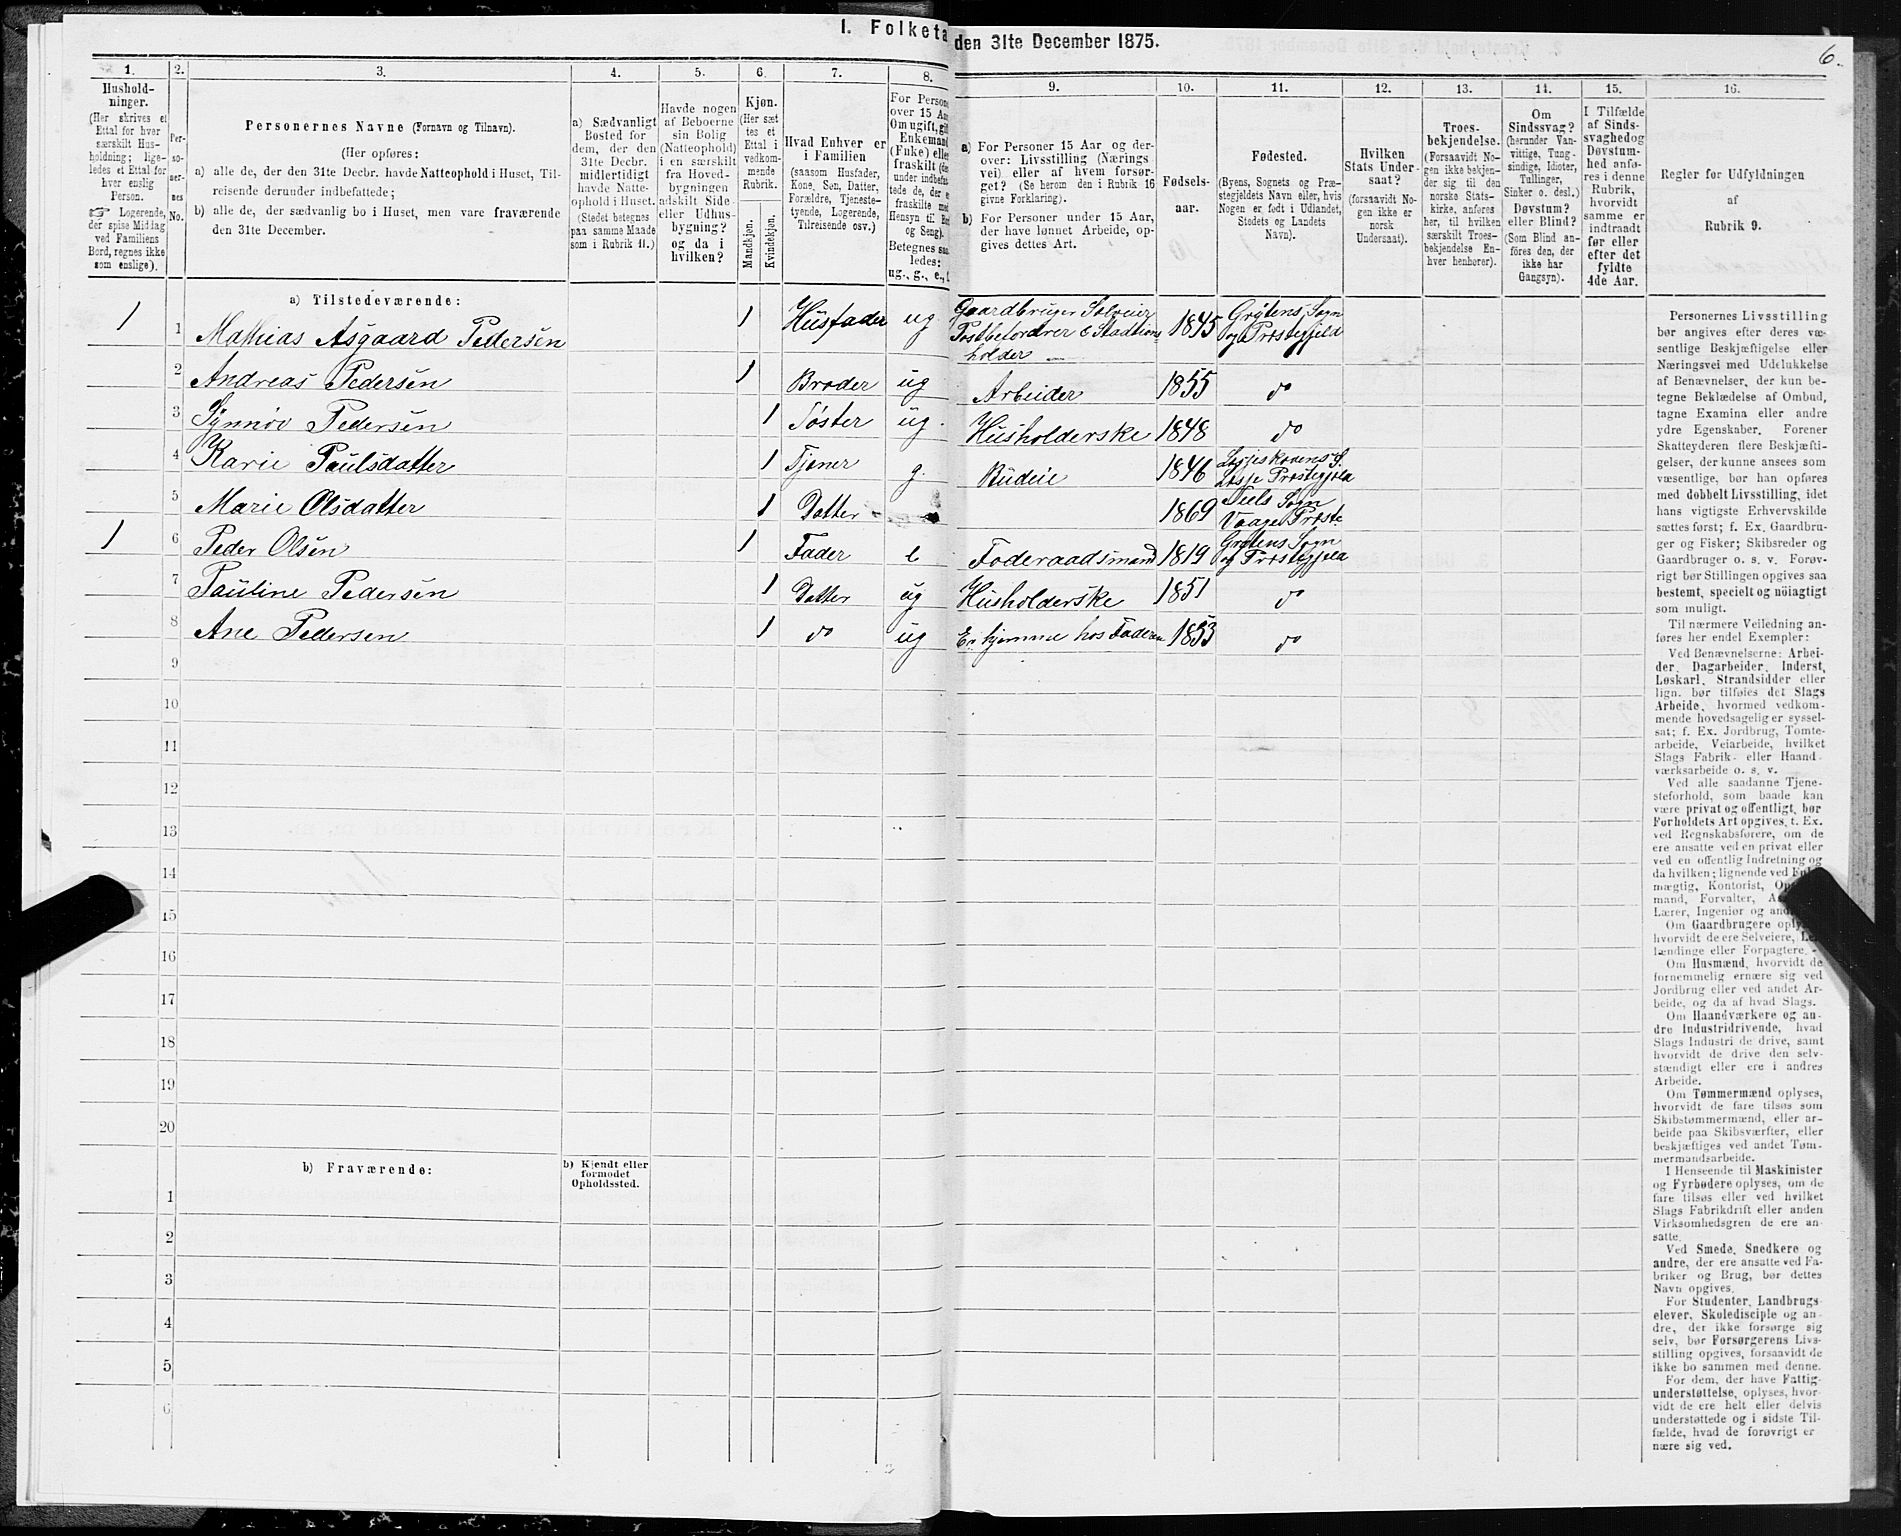 I. Folketa den 31te December 1875.
6.
1.
Hushold-
ninger.
(Her skrives et
Ettal for hver
særskilt Hus-
holdning; lige-
ledes et Ettal for
hver enslig
Person.
☞ Logerende,
der spise Middag
ved Familiens
Bord, regnes ikke
som enslige).
2.
Per-
so-
ner-
nes
No.
3.
Personernes Navne (Fornavn og Tilnavn).
(Her opføres:
a) alle de, der den 31te Decbr. havde Natteophold i Huset, Til-
reisende derunder indbefattede;
b) alle de, der sædvanlig bo i Huset, men vare fraværende
den 31te December.
4.
a) Sædvanligt
Bosted for
dem, der den
31te Decbr.
midlertidigt
havde Natte-
ophold i Huset.
(Stedet betegnes
paa samme Maade
som i Rubrik 11.)
5.
Havde nogen
af Beboerne
sin Bolig
(Natteophold)
i en særskilt
fra Hoved-
bygningen
adskilt Side-
eller Udhus-
bygning?
og da i
hvilken?
6.
Kjøn.
(Her sæt-
tes et
Ettal i
vedkom-
mende
Rubrik.
Mandkjøn.
Kvindekjøn.
7.
Hvad Enhver er
i Familien
(saasom Husfader,
Kone, Søn, Datter,
Forældre, Tjeneste-
tyende, Logerende,
Tilreisende osv.)
8.
For Persone
over 15 Aa
Om ugift, gif
Enkemand
(Enke) elle
fraskilt (de
under indbefat
tede de, der e
fraskilte me
Hensyn til Bo
og Seng).
Betegnes saa
ledes:
ug., g., e., f.
9.
a) For Personer 15 Aar og der-
over: Livsstilling (Nærings
vei) eller af hvem forsør-
get? (Se herom den i Rubrik 16
givne Forklaring).
b) For Personer under 15 Aar,
der have lønnet Arbeide, op-
gives dettes Art.
10.
Fødsels-
aar.
11.
Fødested.
(Byens, Sognets og Præ-
stegjeldets Navn eller, hvis
Nogen er født i Udlandet,
Stedets og Landets
Navn).
12.
Hvilken
Stats Under-
saat?
(forsaavidt No-
gen ikke er
norsk
Undersaat).
13.
Troes-
bekjendelse.
(Forsaavidt No-
gen ikke bekjen-
der sig til den
norske Stats-
kirke, anføres
her, til hvilken
særskilt Troes-
bekjendelse En-
hver henhører).
14.
Om
Sindssvag?
(herunder Van-
vittige, Tung-
sindige, Idioter,
Tullinger,
Sinker o. desl.)
Døvstum?
eller Blind?
(Som Blind an-
føres den, der
ikke har
Gangsyn).
15.
I Tilfælde
af Sinds-
svaghed og
Døvstum-
hed anfø-
res i denne
Rubrik,
hvorvidt
samme er
indtraadt
før eller
efter det
fyldte
4de Aar.
16.
Regler for Udfyldningen
af
Rubrik 9.
a) Tilstedeværende:
1 1 Mathias Asgaard Pedersen 1 Husfader ug. Gaardbruger Selveier Postbefordrer & Stadtions holder 1845 Grytens Sogn og Præstegjeld
2 Andreas Pedersen 1 Broder ug Arbeider 1855 do
3 Synnøv Pedersen 1 Søster ug. Husholderske 1848 do
4 Karie Paulsdatter 1 Tjener g. Budeie 1846 Lesjeskovens S. Lesje Præstegjeld
5 Marie Olsdatter 1 Datter 1869 Sogn Vaage Præste
1 6 Peder Olsen 1 Fader e Foderaadsmand 1819 Grytens Sogn og Præstegjeld
7 Pauline Pedersen 1 Datter ug Husholderske 1851 do
8 Ane Pedersen 1 do ug Er hjemme hos Faderen 1853 do
9
10
11
12
13
14
15
16
17
18
19
20
b) Fraværende:
b) Kjendt eller
formodet
Opholdssted.
1
2
3
4
5
6
Personernes Livsstilling
bør angives efter deres væ-
sentlige Beskjæftigelse eller
Næringsvei med Udelukkelse
af Benævnelser, der kun be-
tegne Beklædelse af Ombud,
tagne Examina eller andre
ydre Egenskaber. Forener
Skatteyderen flere Beskjæfti-
gelser, der kunne ansees som
væsentlige, bør han opføres
med dobbelt Livsstilling, idet
hans vigtigste Erhvervskilde
sættes først; f. Ex. Gaardbru-
ger og Fisker; Skibsreder og
Gaardbruger o. s. v. Forøv-
rigt bør Stillingen opgives saa
bestemt, specielt og nøiagtigt
som muligt.
Til nærmere Veiledning an-
føres her endel Exempler:
Ved Benævnelserne: Arbei-
der, Dagarbeider, Inderst,
Løskarl, Strandsidder eller
lign. bør tilføies det Slags
Arbeide, hvormed vedkom-
mende hovedsagelig er syssel-
sat; f. Ex. Jordbrug, Tomte-
arbeide, Veiarbeide, hvilket
Slags Fabrik- eller Haand-
værksarbeide o. s. v.
Ved alle saadanne Tjene-
steforhold, som baade kan
være privat og offentligt, bør
Forholdets Art opgives, t. Ex.
ved Regnskabsførere, om de
ere ansatte ved en privat eller
ved en offentlig Indretning og
da hvilken; lignende ved Ful
mægtig, Kontorist, Op
mand, Forvalter, As
Lærer, Ingeniør og and
Om Gaardbrugere oply
hvorvidt de ere Selveiere, Lei
lændinge eller Forpagtere.
Om Husmænd, hvorvidt de
fornemmelig ernære sig ved
Jordbrug eller ved andet Ar-
beide, og da af hvad Slags.
Om Haandværkere og an-
dre Industridrivende, hvad
Slags Industri de drive, samt
hvorvidt de drive den selv-
stændigt eller ere i andres
Arbeide.
Om Tømmermænd oplyses,
hvorvidt de fare tilsøs som
Skibstømmermænd, eller ar-
beide paa Skibsværfter, eller
beskjæftiges ved andet Tøm-
mermandsarbeide.
I Henseende til Maskinister
og Fyrbødere oplyses, om de
fare tilsøs eller ved hvilket
Slags Fabrikdrift eller anden
Virksomhedsgren de ere an-
satte.
Ved Smede, Snedkere og
andre, der ere ansatte ved Fa-
briker og Brug, bør dettes
Navn opgives.
For Studenter, Landbrugs-
elever, Skoledisciple og an-
dre, der ikke forsørge sig
selv, bør Forsørgerens Livs-
stilling opgives, forsaavidt de
ikke bo sammen med denne.
For dem, der have Fattig-
understøttelse, oplyses, hvor-
vidt de ere helt eller delvis
understøttede og i sidste Til-
fælde, hvad de forøvrigt er
nære sig ved.